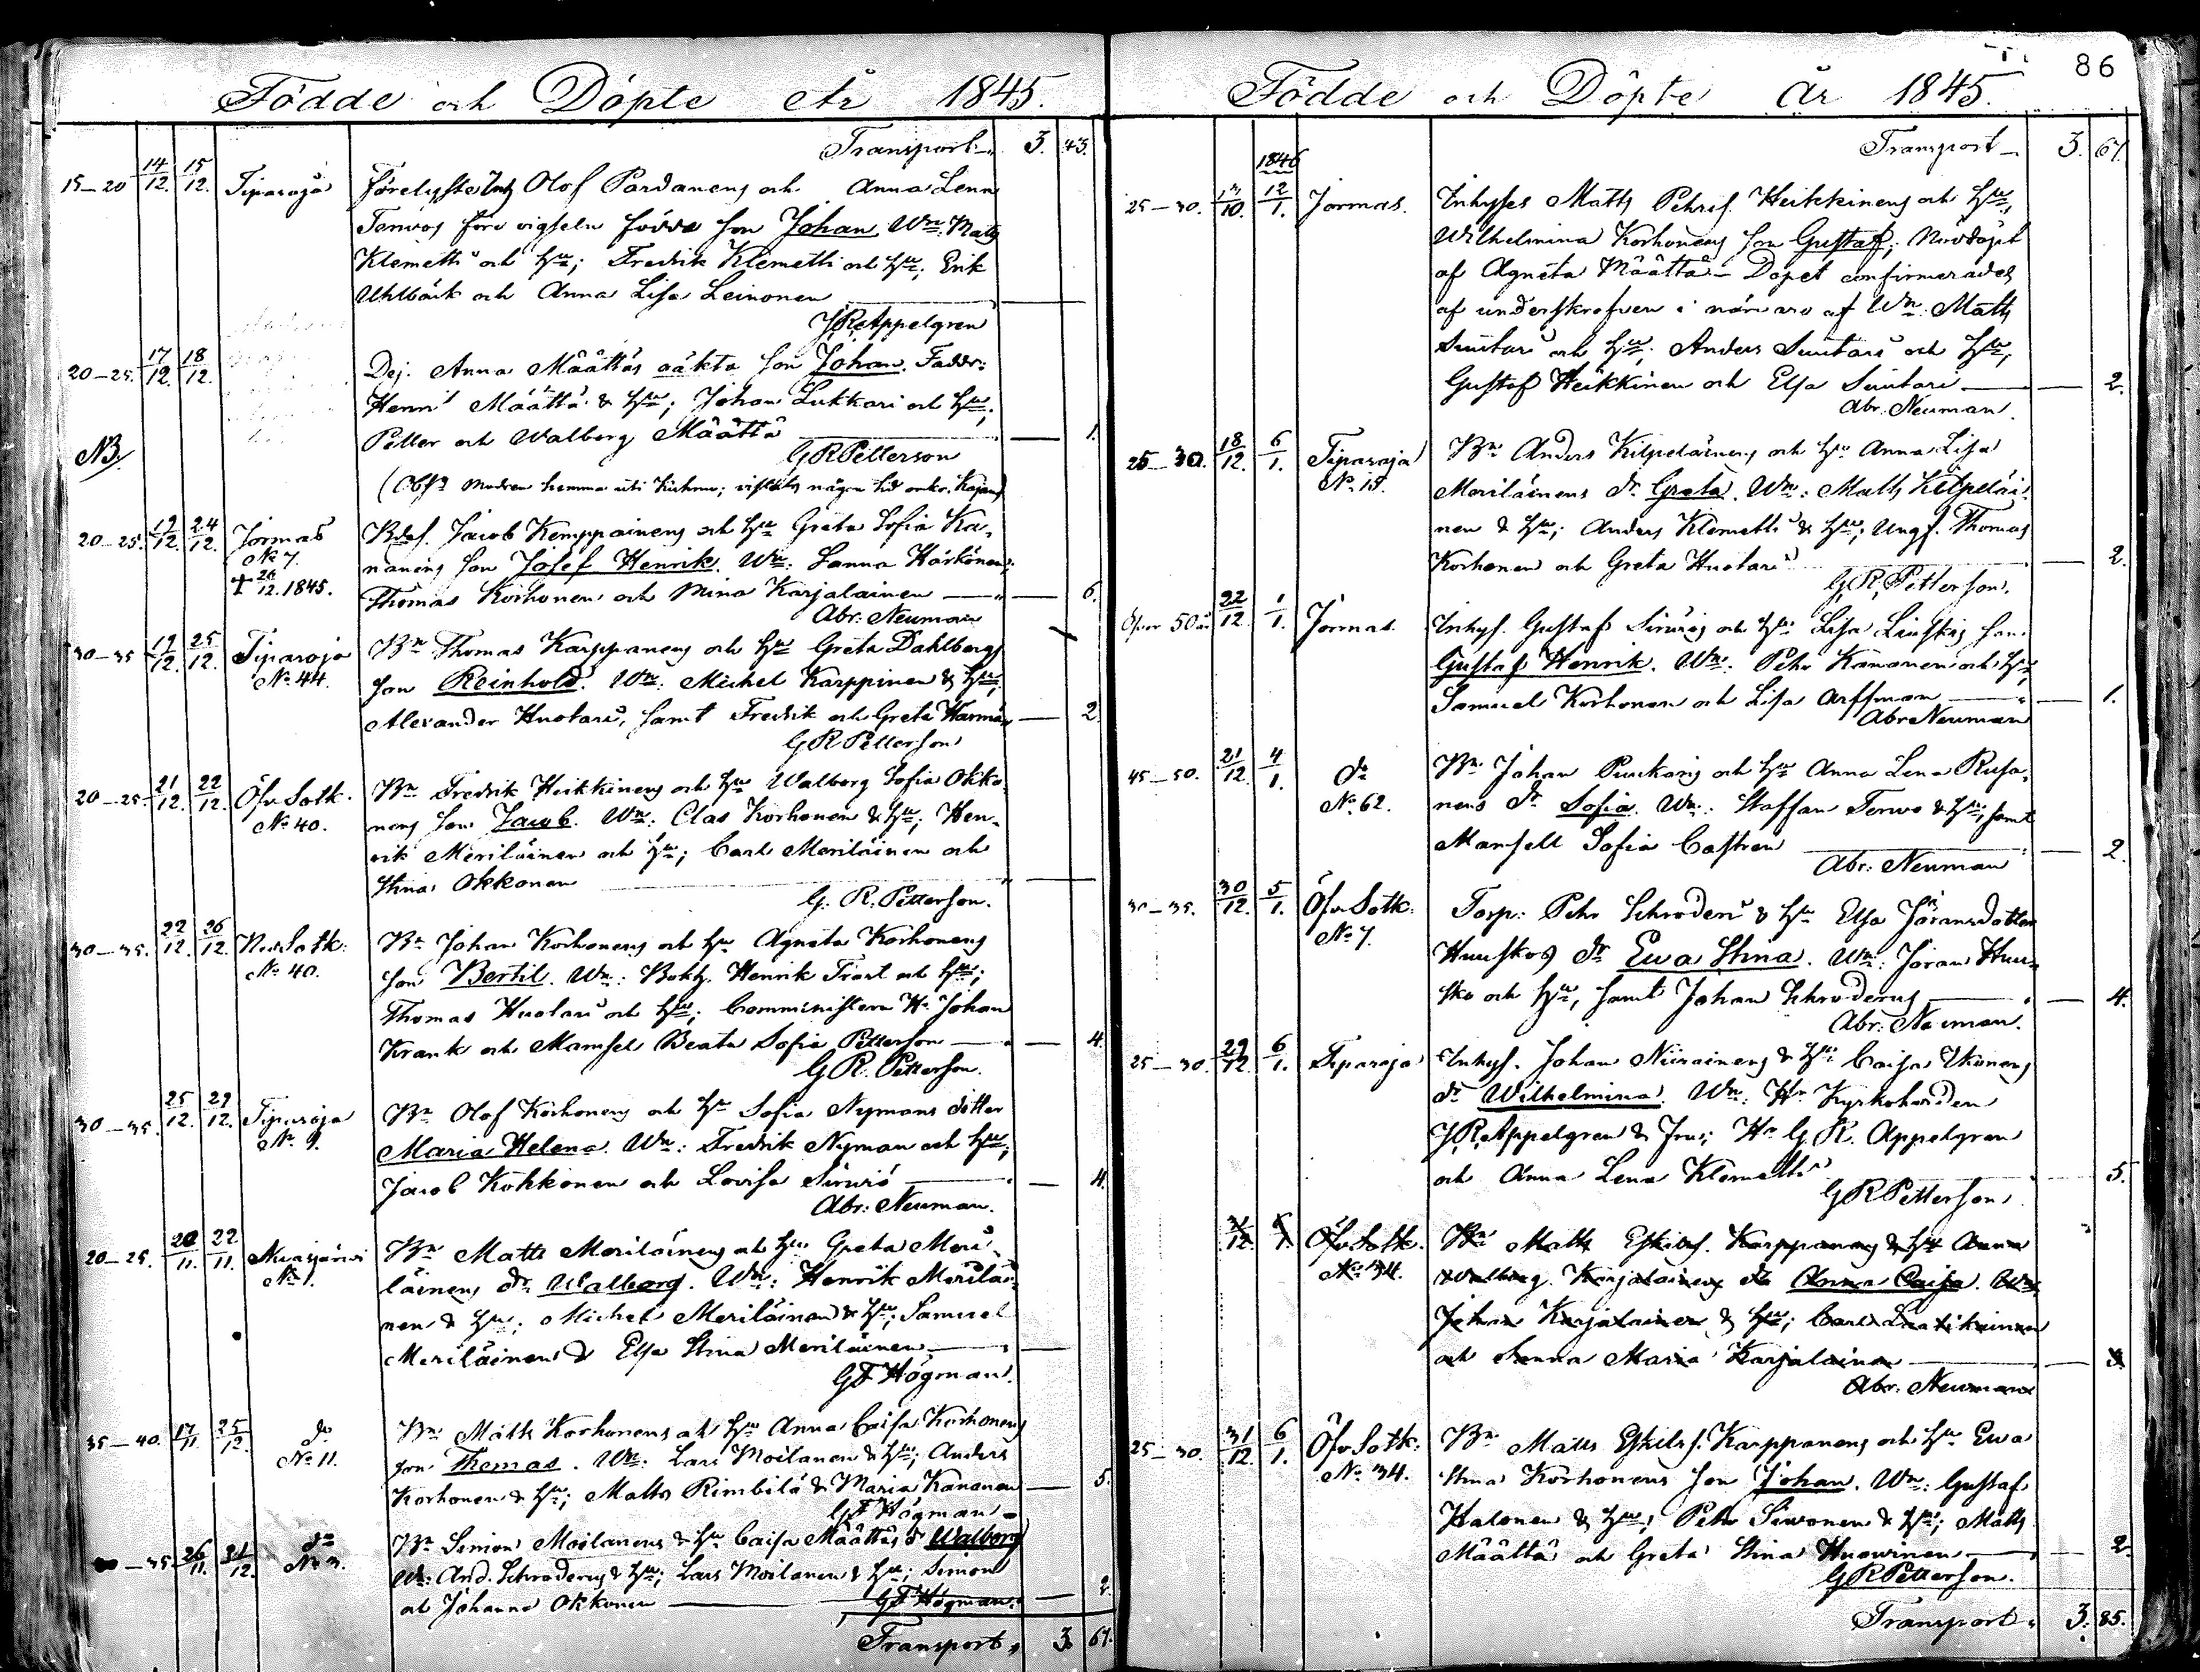 Födde och Döpte År 1845.
Transport 3. 43.
15–20 14/12. 15/12. Tiparoja Förelyste Inh Olof Pardanens och Anna Lena
Tervos före vigseln födde son Johan. Wn: Matts
Klemetti och hu; Fredrik Klemetti och hu; Erik
Uhlbäck och Anna Lisa Leinonen
J R Appelgren
20–25. 17/12. 18/12. Dej. Anna Määttäs oäkta son Johan. Faddr:
Henr: Määttä & hu; Johan Lukkari och hu;
Petter och Walborg Määttä 1.
NB/ G R Petterson
(Obs. modren hemma uti Kuhmo; vistats någon tid omkr. Kajana)
20–25. 19/12. 24/12. Jormas Bdes. Jacob Kemppainens och hu Greta Sofia Ka-
No 7. nanens son Josef Henrik. Wn: Sanna Härkönen;
+ 26/12. 1845. Thomas Korhonen och Mina Karjalainen 6.
Abr: Neuman
30–35 19/12. 25/12. Tiparoja Bn Thomas Karppanens och hu Greta Dahlbergs
No 44. son Reinhold. Wn: Michel Karppinen & hu;
Alexander Huotari, samt Fredrik och Greta 2
G R Petterson
20–25. 21/12. 22/12. Öfv Sotk. Bn Fredrik Heikkinens och hu Walborg Sofia Okko
No 40. nens son Jacob. Wn: Clas Korhonen & hu; Hen-
rik Meriläinen och hu; Carl Meriläinen och
Stina Okkonen
G. R. Petterson.
30–35. 22/12. 26/12. Ned Sotk: Bn Johan Korhonens och hu Agneta Korhonens
No 40. son Bertil. Wn: Bokh. Henrik Trast och hu;
Thomas Huotari och hu; Comministern Hr Johan
Krank och Mamsel Beata Sofia Petterson 4.
G R. Petterson.
30–35. 25/12. 29/12. Tiparoja Bn Olof Korhonens och hu Sofia Nymans dotter
No 9. Maria Helena. Wn: Fredrik Nyman och hu;
Jacob Kokkonen och Lovisa Sirviö 4.
Abr: Neuman.
20–25. 20/11. 22/11. Bn Matts Meriläinens och hu Greta Meri-
No 1. läinens dr Walborg. Wn: Henrik Meriläi-
nen & hu; Michel Meriläinen & hu; Samuel
Meriläinen & Elsa Stina Meriläinen
G F Högman.
35–40. 17/11. 25/12. do Bn Matts Korhonens och hu Anna Caisa Korhonens
No 11. son Thomas. Wn: Lars Moilanen & hu; Anders
Korhonen & hu; Matts Rimbilä & Maria Kananen 5.
G F Högman
–35 26/11. 31/12. do Bn Simon Moilanens & hu Caisa Määttäs dr Walborg
No 3. Wn: And. Schroderus & hu; Lars Moilanen & hu; Simon
och Johanna Okkonen 2.
G F Högman.
Transport 3. 67.
86
Födde och Döpte År 1845.
Transport 3. 67.
1846
25–30. 13/10. 12/1. Jormas. Inhyses Matts Pehrs. Heikkinens och hu,
Wilhelmina Korhonens son Gustaf; Nöddöpt
af Agneta Määttä – Dopet confirmerades
af underskrefven i närvaro af Wn: Matts
Suutari och hu; Anders Suutari och hu,
Gustaf Heikkinen och Elsa Suutari 2.
Abr. Neuman.
25–30. 18/12. 6/1. Tiparoja Bn Anders Kilpeläinens och hu Anna Lisa
No 15. Meriläinens dr Greta. Wn: Matts Kilpeläi-
nen & hu; Anders Klemetti & hu; Ungf. Thomas
Korhonen och Greta Huotari 2.
G. R. Petterson.
Öfver 50 år 22/12. 1/1. Jormas. Inhys. Gustaf Sirviös och hu Lisa son
Gustaf Henrik. Wn: Pehr Kananen och hu,
Samuel Korhonen och Lisa Arffman 1.
Abr Neuman
45–50. 21/12. 4/1. do Bn Johan Puukaris och hu Anna Lena Rusa-
No 62. nens dr Sofia. Wn: Staffan Tervo & hu; samt
Mamsell Sofia Castren 2.
Abr: Neuman
30–35. 30/12. 5/1. Öfv Sotk: Torp: Pehr Schroderi & hu Elsa Jöransdotter
No 7. Huuskos dr Ewa Stina. Wn: Jöran Huu-
sko och hu, samt Johan Schroderus 4.
Abr: Neuman.
25–30. 29/12. 6/1. Tiparoja Inhys. Johan Niiranens & hu Caisa Ikonens
dr Wilhelmina. Wn: Hr Kyrkoherden
J R Appelgren & Fru; Hr G. R. Appelgren
och Anna Lena Klemetti 5.
G R Petterson
31/12. 6/1. Öfv Sotk. Bn Matts Eskils. Karppanens & hu Anna
No 34. Walborg Karjalainens dr Anna Caisa. Wn:
Johan Karjalainen & hu; Carl Laatikainen
och Sanna Maria Karjalainen 3.
Abr. Neuman
25–30. 31/12. 6/1. Öfv Sotk: Bn Matts Eskils. Karppanens och hu Ewa
No 34. Stina Korhonens son Johan. Wn: Gustaf
Halonen & hu; Pehr Sivonen & hu; Matts
Määttä och Greta Stina Huovinen 2.
G R Petterson.
Transport 3. 85.